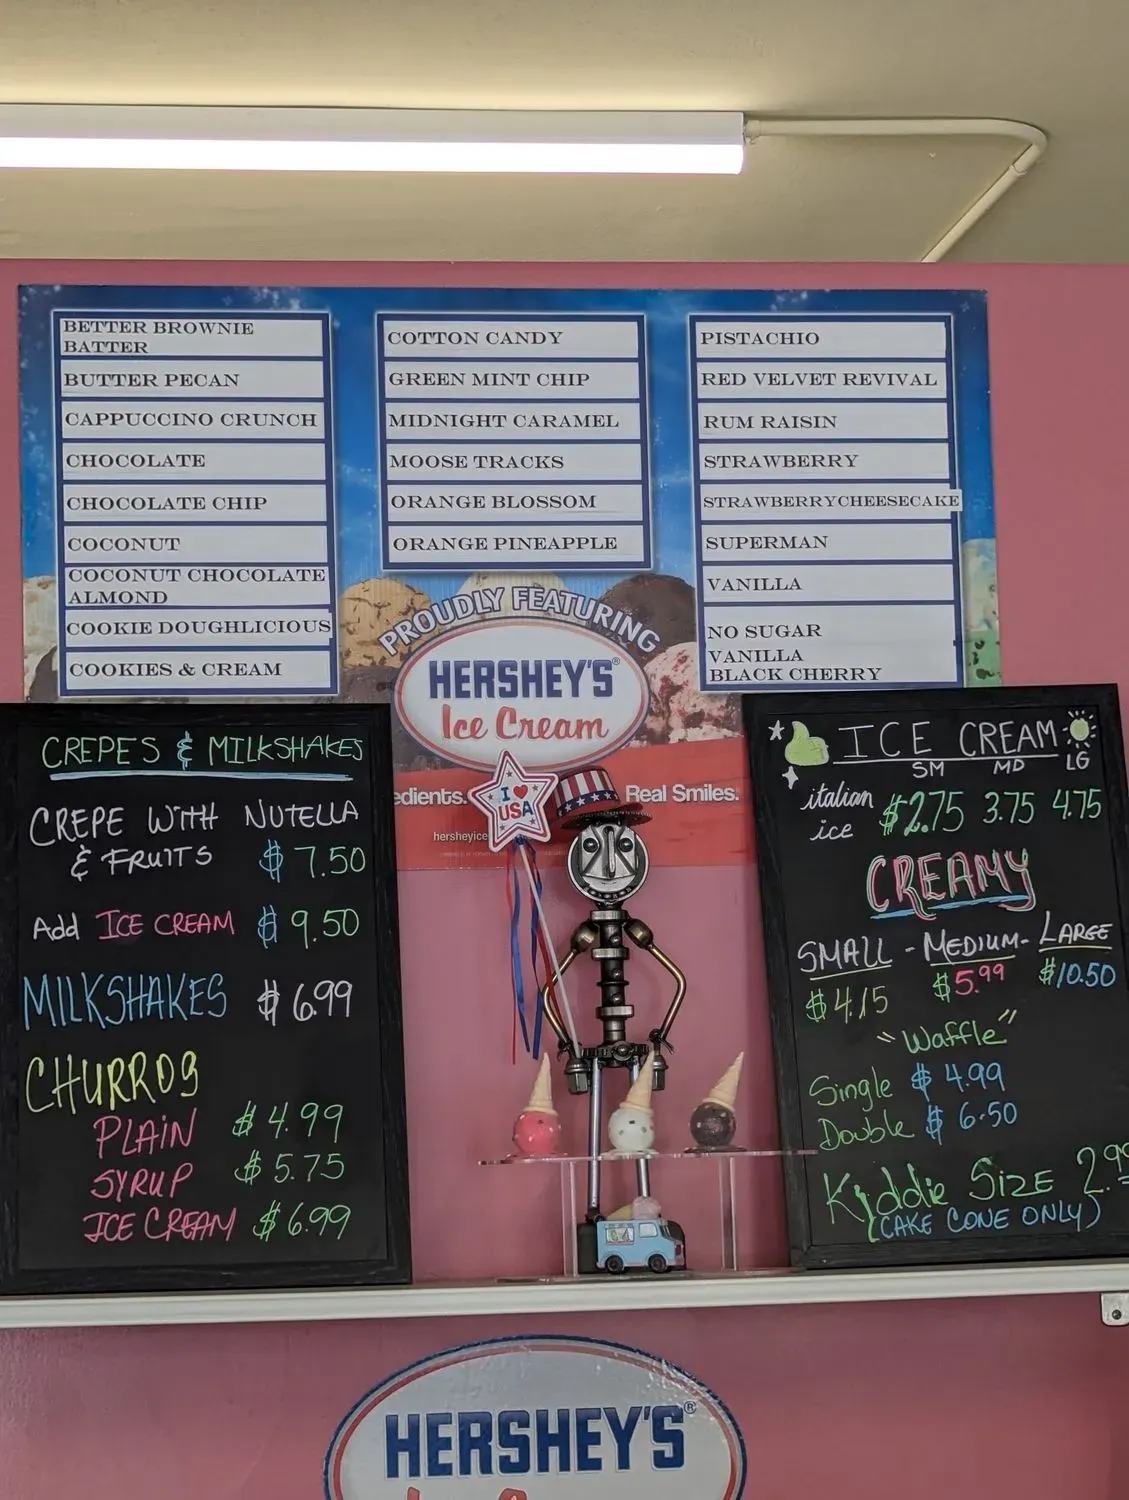 BETTER BROWNIE
BATTER
BUTTER PECAN
CAPPUCCINO CRUNCH
CHOCOLATE
CHOCOLATE CHIP
COCONUT
COCONUT CHOCOLATE
ALMOND
COOKIE DOUGHLICIOUS
COOKIES & CREAM
COTTON CANDY
GREEN MINT CHIP
MIDNIGHT CARAMEL
MOOSE TRACKS
ORANGE BLOSSOM
ORANGE PINEAPPLE
PISTACHIO
RED VELVET REVIVAL
RUM RAISIN
STRAWBERRY
STRAWBERRYCHEESECAKE
SUPERMAN
VANILLA
NO SUGAR
VANILLA
BLACK CHERRY
PROUDLY FEATURING
HERSHEY'S®
Ice Cream
edients. Real Smiles.
hersheyice
I ♥
USA
CREPES & MILKSHAKES
CREPE WITH NUTELLA
& FRUITS $ 7.50
Add ICE CREAM $ 9.50
MILKSHAKES $ 6.99
CHURROS
PLAIN $ 4.99
SYRUP $ 5.75
ICE CREAM $ 6.99
ICE CREAM
SM MD LG
italian
ice $2.75 3.75 4.75
CREAMY
SMALL - MEDIUM - LARGE
$4.15 $5.99 $10.50
"Waffle"
Single $ 4.99
Double $ 6.50
Kiddie SIZE 2.99
(CAKE CONE ONLY)
HERSHEY'S®